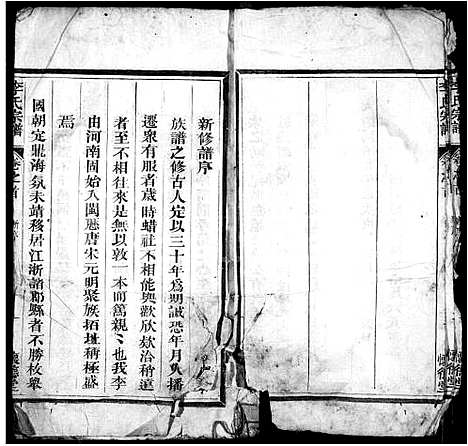 新修譜序
族譜之修古人定以三十年爲期誠恐年月久播
遷衆有服者歲時蜡社不相能與歡欣欬洽稍遠
者至不相往來是無以敦一本而篤親〻也我李
氏由河南固始入閩懸唐宋元明聚族拓址稱極盛
焉
國朝定鼎海氛未靖移居江浙諸郡縣者不勝枚舉
李氏宗譜
卷之首